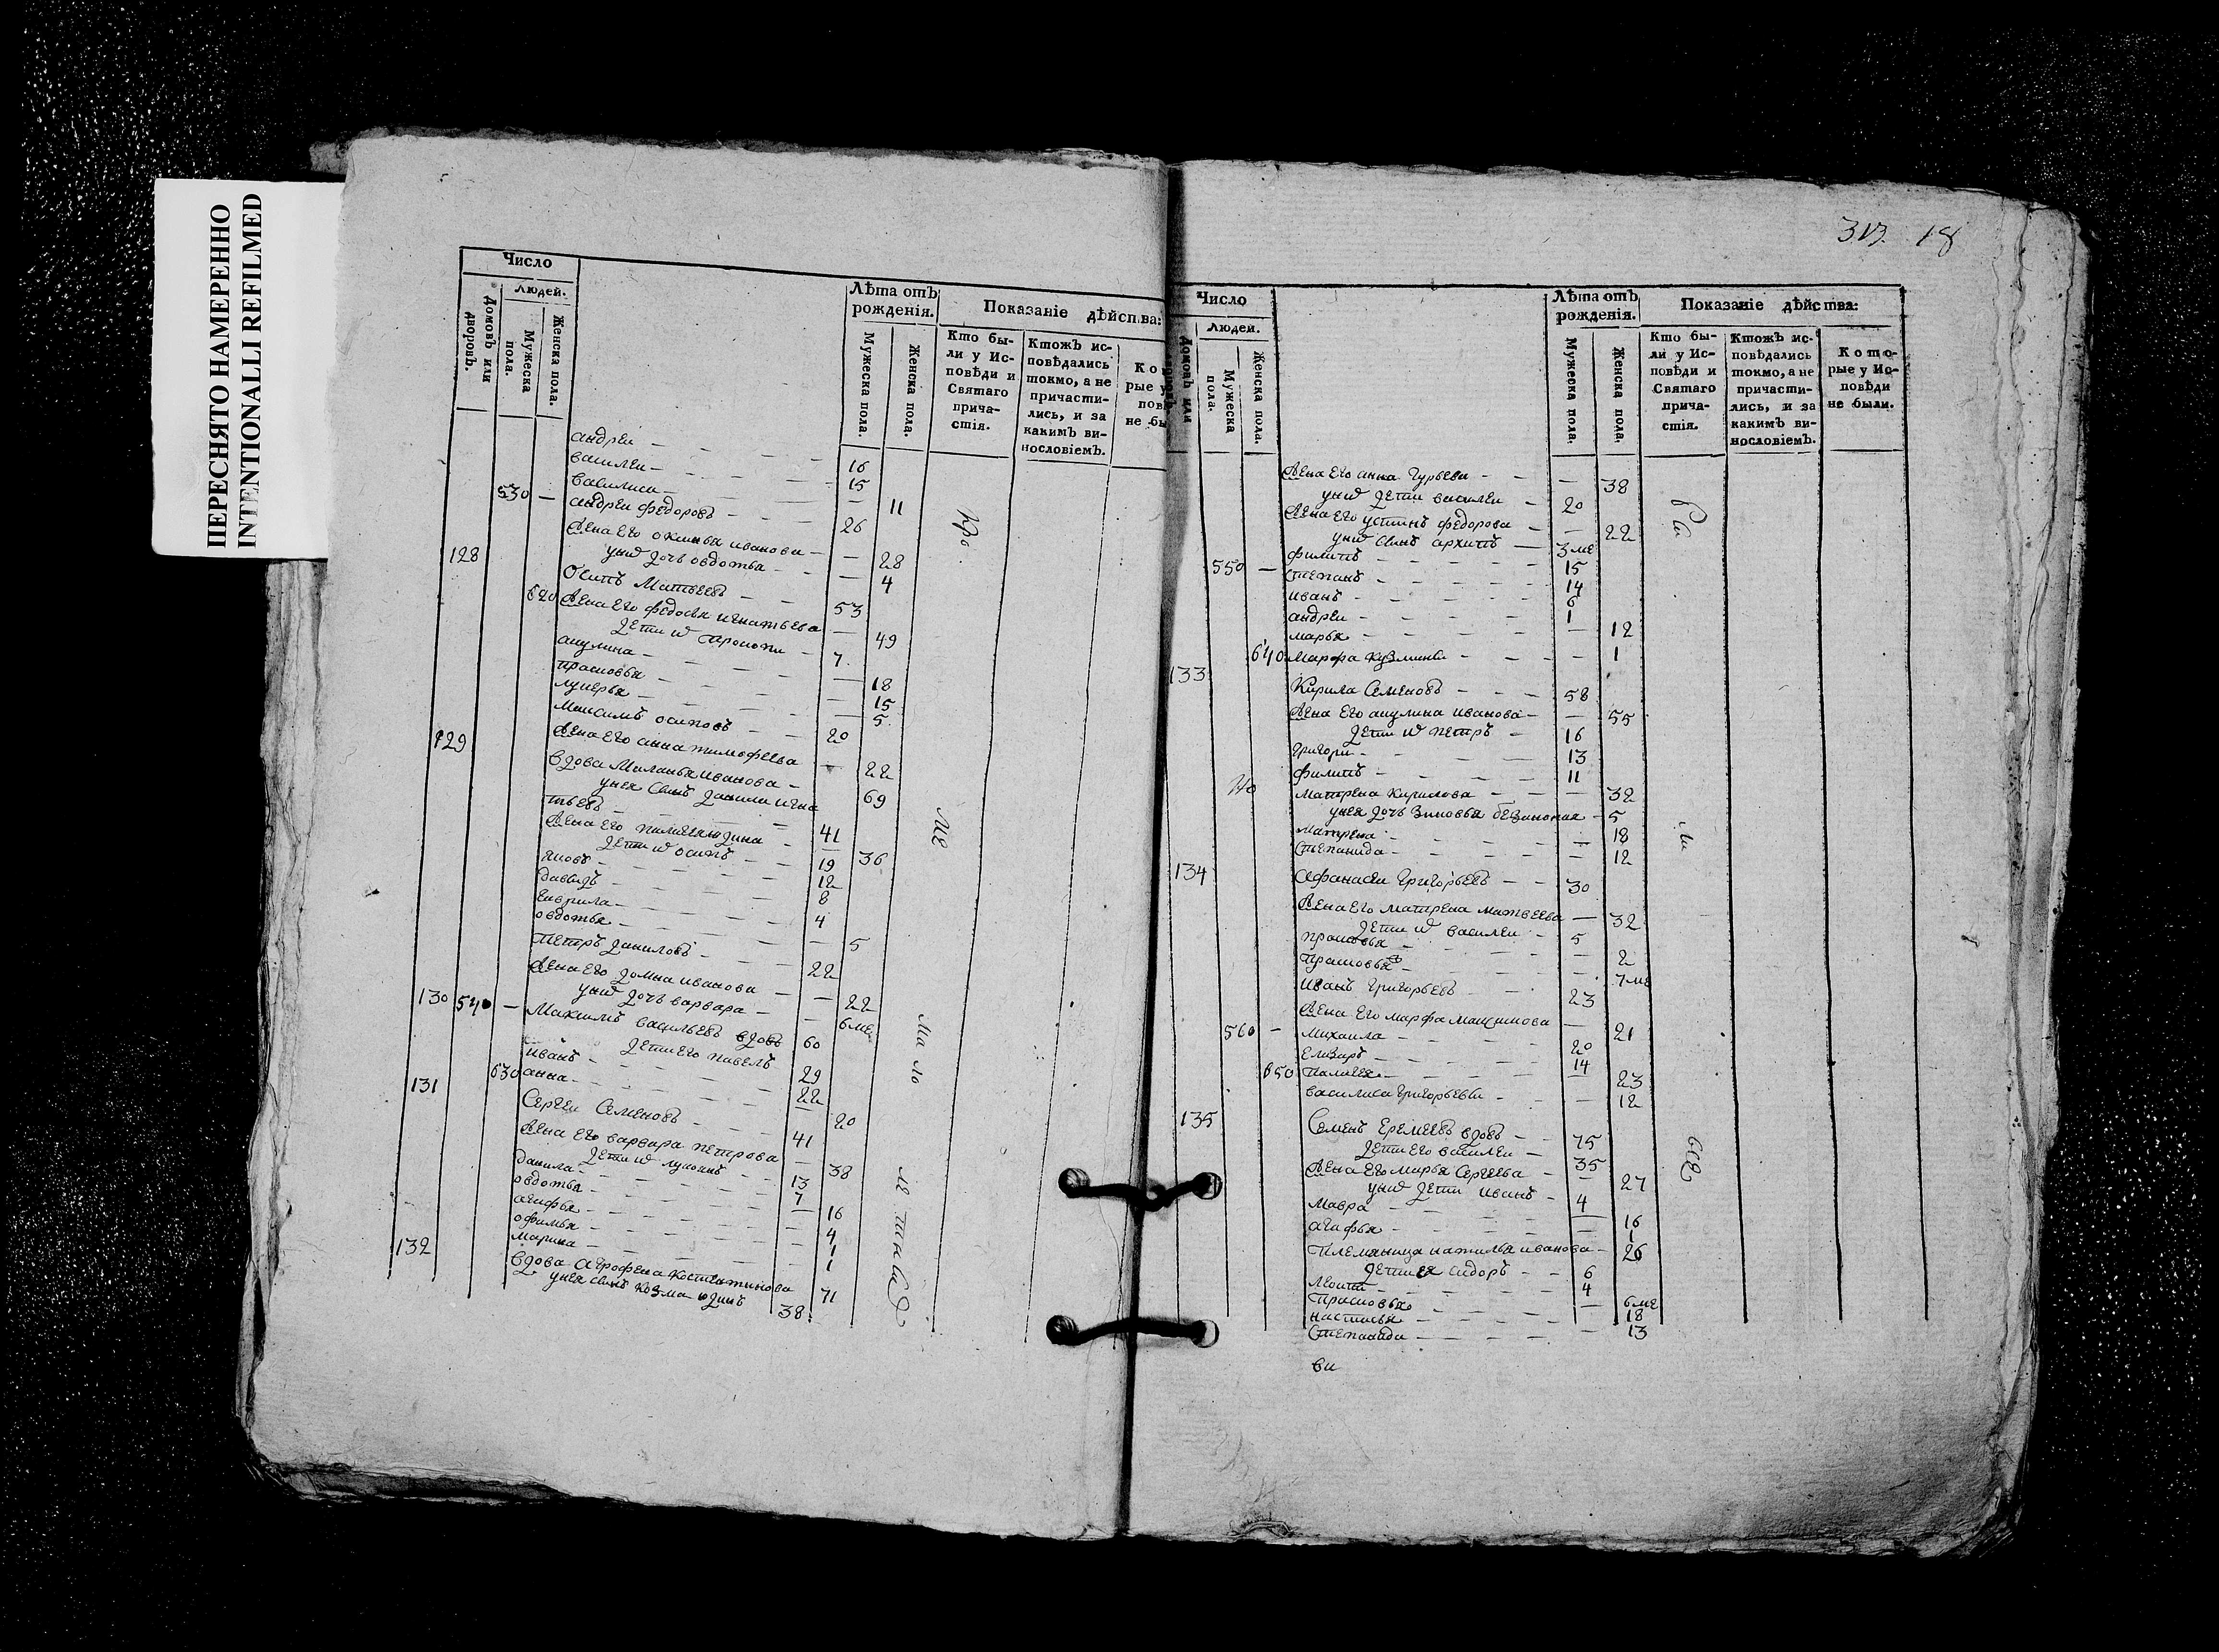 ПЕРЕСНЯТО НАМЕРЕННО
INTENTIONALLI REFILMED
Число
Людей.
Домовъ или дворовъ.
Мужеска пола.
Женска пола.
Лѣта отъ рожденія.
Мужеска пола.
Женска пола.
Показаніе дѣйства:
Кто были у Исповѣди и Святаго причастія.
Ктожъ исповѣдались токмо, а не причастились, и за какимъ винословіемъ.
андреи — 16
василеи — 15
василиса — 11
530 — андреи федоровъ — 26
Жена его оксинья иванова — 28
у нихъ дочь овдотья — 4
128 Осипъ Матвеевъ — 53
620 Жена его федосья игнатьева — 49
дети ихъ — 7
акулина — 18
прасковья — 15
лукерья — 5
Максимъ осиповъ — 20
Жена его анна тимофеева — 22
129 Вдова Маланья иванова — 69
у нея сынъ данила игна
тьевъ — 41
Жена его — 36
дети ихъ осипъ — 19
яковъ — 12
давыдъ — 8
гаврила — 4
овдотья — 5
Петръ даниловъ — 22
Жена его домна иванова — 22
у нихъ дочь варвара — 6 ме
130 540 — Максимъ васильевъ вдовъ 60
дети его павелъ 29
иванъ — 22
630 анна — 20
131 Сергеи Семеновъ — 41
Жена его варвара петрова — 38
дети ихъ лукьянъ — 13
данила — 7
овдотья — 16
агафья — 4
офимья — 1
марина — 1
132 Вдова Агрофена Костентинова 71
у нея сынъ козма юдинъ 38
313. 18
Число
Людей.
Домовъ или дворовъ.
Мужеска пола.
Женска пола.
Лѣта отъ рожденія.
Мужеска пола.
Женска пола.
Показаніе дѣйства:
Кто были у Исповѣди и Святаго причастія.
Ктожъ исповѣдались токмо, а не причастились, и за какимъ винословіемъ.
Которые у Исповѣди не были.
Жена его анна Гурьева — 38
у нихъ дети василеи — 20
Жена его устинья федорова — 22
у нихъ сынъ архипъ — 3 ме
филипъ — 15
550 — степанъ — 14
иванъ — 6
андреи — 1
марья — 12
640 Марфа кузмина — 1
133 Кирила Семеновъ — 58
Жена его акулина иванова — 55
дети ихъ петръ — 16
григори — 13
филипъ — 11
Матрена Кирилова — 32
у нея дочь Зиновья — 5
матрена — 18
степанида — 12
134 Афанасеи Григорьевъ — 30
Жена его матрена матвеева — 32
дети ихъ василеи — 5
прасковья — 2
прасковья — 7 ме
иванъ григорьевъ — 23
Жена его марфа максимова — 21
560 — михаила — 20
елизаръ — 14
650 пелагея — 23
василиса григорьева — 12
135 Семенъ Еремеевъ вдовъ — 75
дети его василеи — 35
Жена его марья Сергеева — 27
у нихъ дети иванъ — 4
Мавра — 16
агафья — 1
племянница наталья иванова — 26
дети ея сидоръ — 6
4
прасковья — 6 ме
настасья — 18
степанида — 13
ва